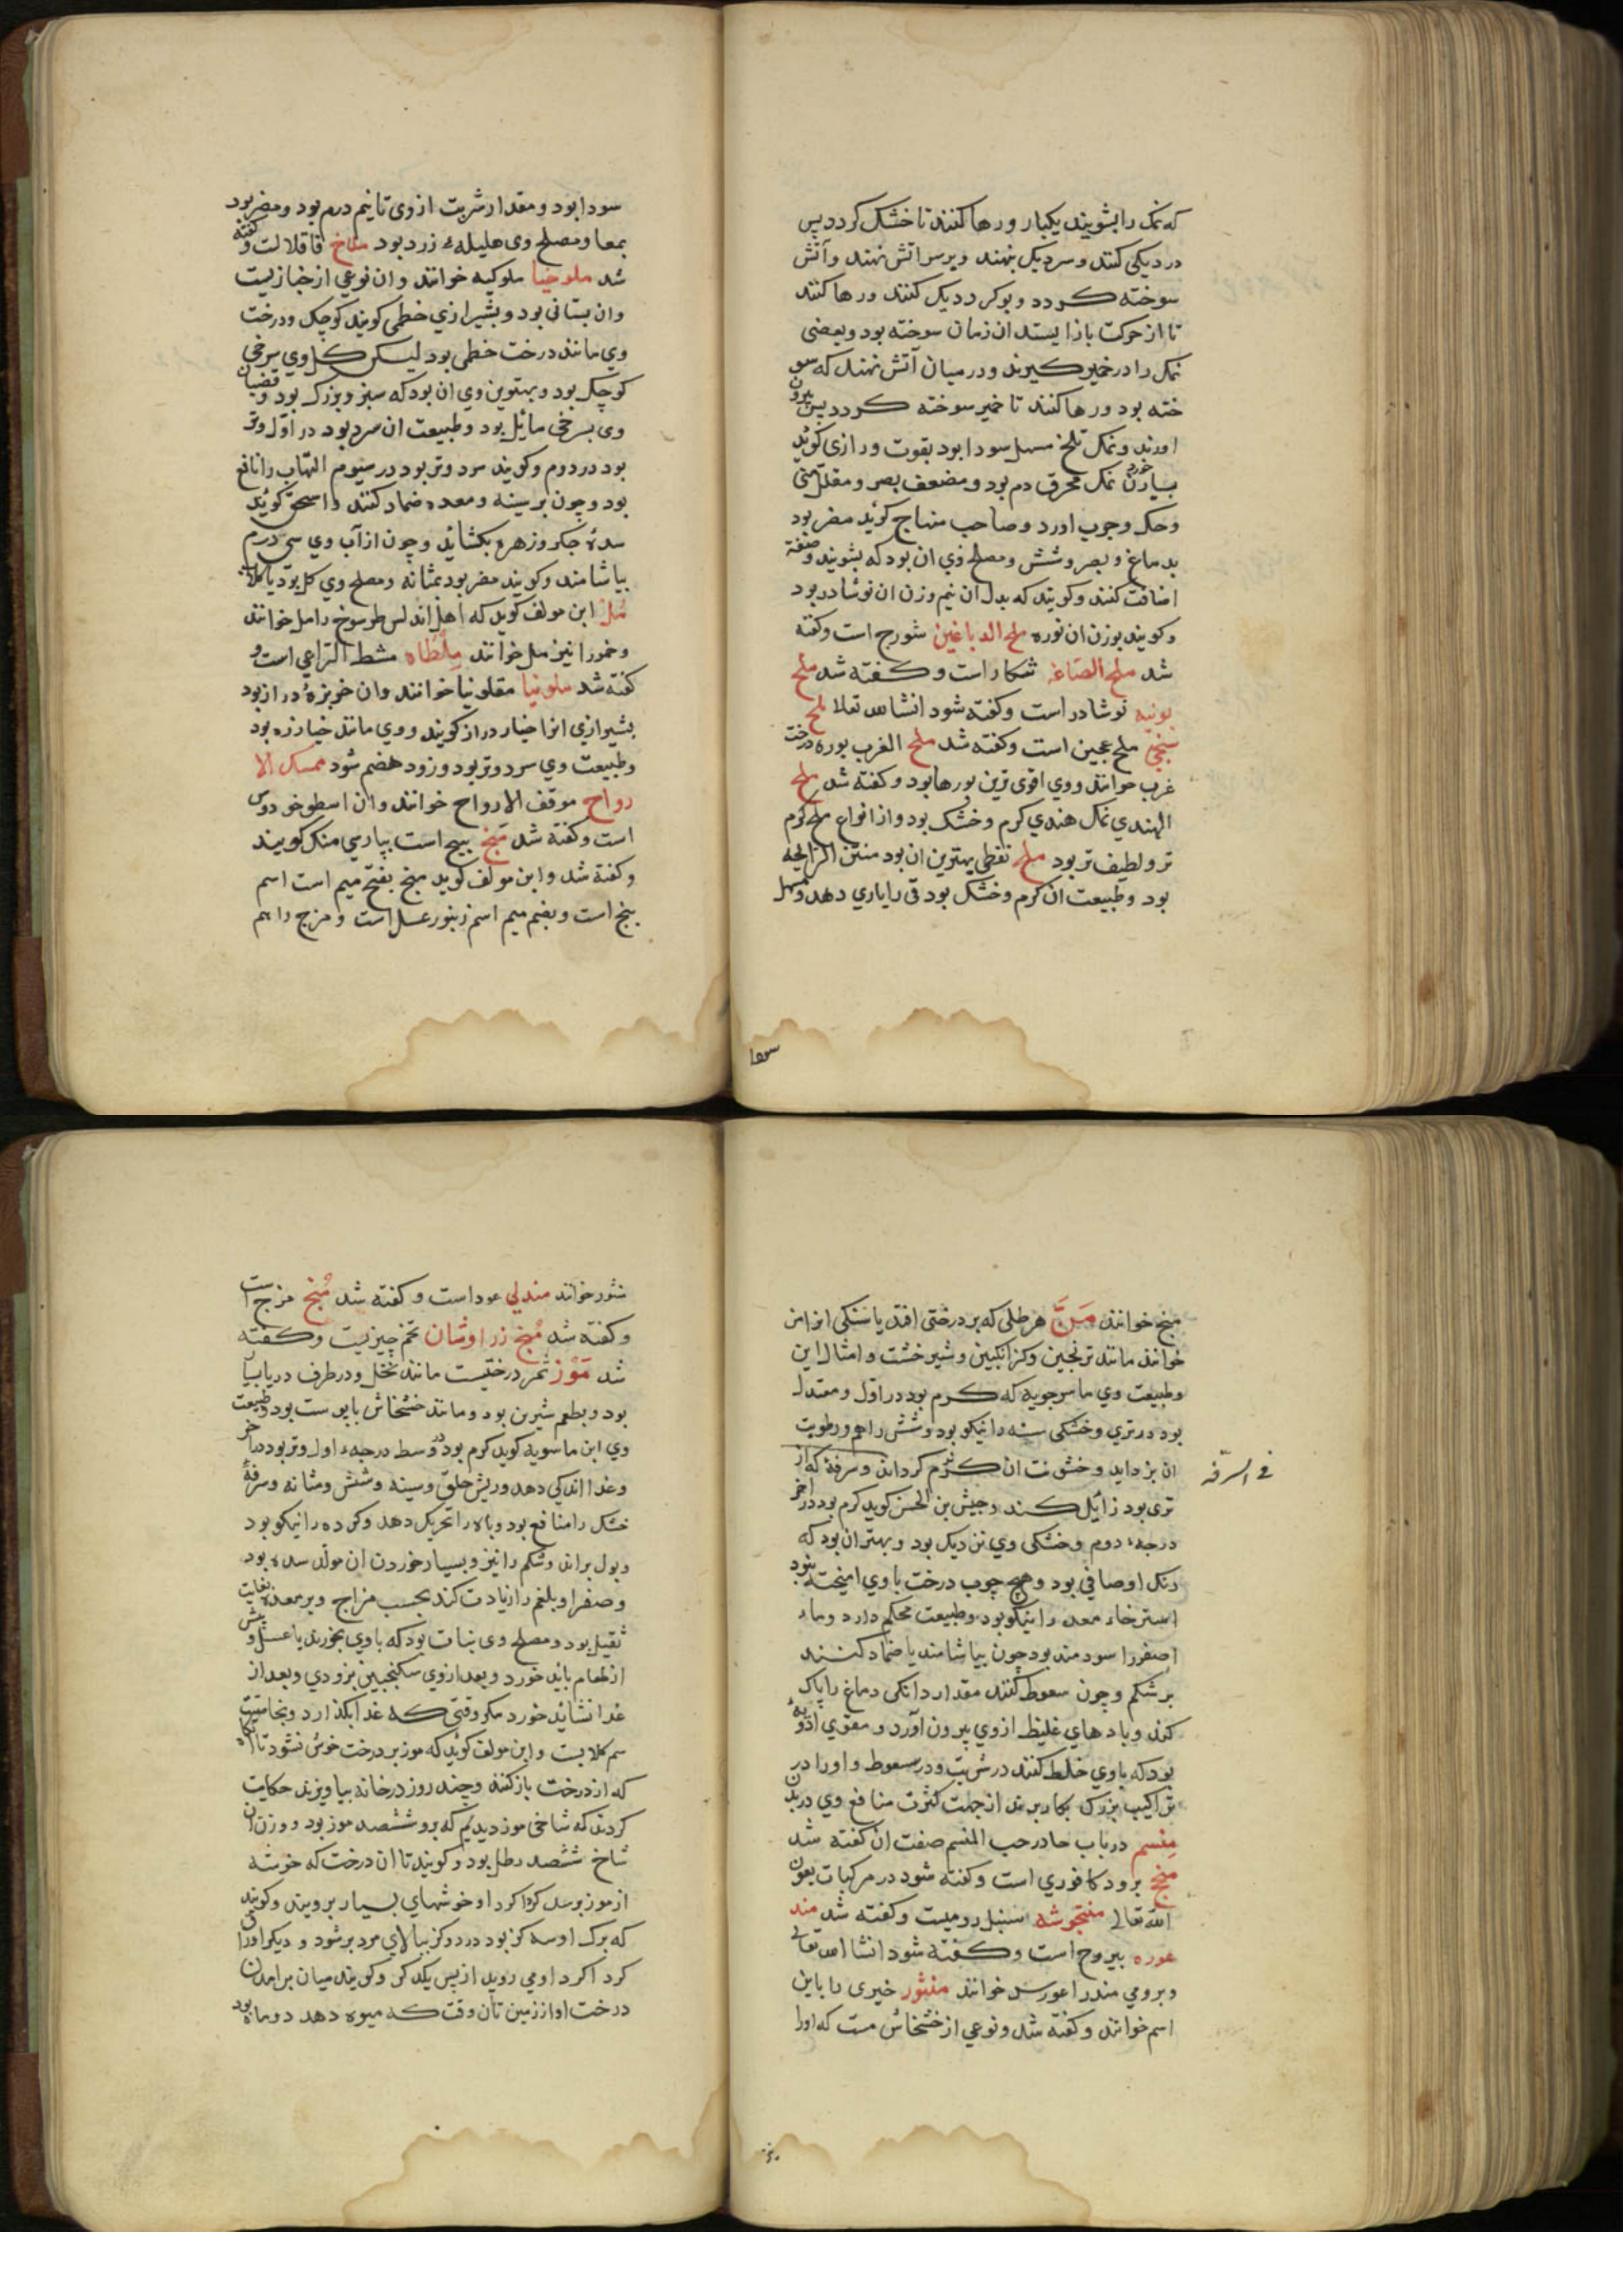 که نمک را بشویند یکبار و رها کنند تا خشک کردد پس
در دیکی کنند و سر دیک بنهند و بر سر اتش نهند و آتش
سوخته کردد و بوکرد دیک کنند و رها کنند
تا از حرکت باز ایستد ان زمان سوخته بود و بعضی
نمک را در خمیر کیرند و در میان آتش نهند که سو
خته بود و رها کنند تا خمیر سوخته کردد پس بیرون
اورند و نمک تلخ مسهل سودا بود بقوت و رازی کوید
بسیار خوردن نمک محرق دم بود و مضعف بصر و مقلل منی
و حکه و جرب اورد و صاحب منهاج کوید مضر بود
بدماغ و بصر و شش و مصلح وی ان بود که بشویند و صعتر
اضافت کنند و کویند که بدل ان نیم وزن ان نوشادر بود
و کویند بوزن ان نوره ملح الدباغین شورج است و کفته
شد ملح الصاغه تنکار است و کفته شد ملح
بونیه نوشادر است و کفته شود انشاالله تعالا ملح
سنجی ملح عجین است و کفته شد ملح الغرب بوره درخت
غرب خوانند و وی اقوی ترین بورها بود و کفته شد ملح
الهندی نمک هندی کرم و خشک بود و از انواع ملح کرم
تر و لطیف تر بود ملح نفطی بهترین ان بود منتن الرایحه
بود و طبیعت ان کرم و خشک بود قی را یاری دهد و مسهل
سودا
سودا بود و مقدار شربت از وی تا نیم درم بود و مضر بود
بمعا و مصلح وی هلیلهٔ زرد بود ملاخ قاقلا لت و کفته
شد ملوخیا ملوکیه خوانند و ان نوعی از خبازیست
و ان بستانی بود و بشیرازی خطمی کویند کوچک و درخت
وی مانند درخت خطمی بود لیکن کل وی سرخی
کوچک بود و بهترین وی ان بود که سبز و بزرک بود و قضبان
وی بسرخی مایل بود و طبیعت ان سرد بود در اول و تر
بود در دوم و کویند سرد و تر بود در سیوم التهاب را نافع
بود و چون بر سینه و معده ضماد کنند و اسحق کوید
سدهٔ جکر و زهره بکشاید و چون از آب وی سی درم
بیاشامند و کویند مضر بود بمثانه و مصلح وی کل بود یا کلاب
مل ابن مولف کوید که اهل اندلس طرسوخ را مل خوانند
و خمر را نیز مل خوانند ملطاه مشط الراعی است و
کفته شد ملونیا مقلونیا خوانند و ان خربزهٔ دراز بود
بشیرازی انرا خیار دراز کویند و وی مانند خیارزه بود
و طبیعت وی سرد و تر بود و زود هضم شود ممسک الا
رواح موقف الارواح خوانند و ان اسطوخودوس
است و کفته شد منج بیج است بپارسی منک کویند
و کفته شد و ابن مولف کوید منج بفتح میم است اسم
بنج است و بضم میم اسم زنبور عسل است و مزج را هم
منج خوانند من هر طلی که بر درختی افتد یا سنکی انرا من
خوانند مانند ترنجبین و کزانکبین و شیرخشت و امثال این
و طبیعت وی ماسرجویه که کرم بود در اول و معتدل
بود در تری و خشکی سینه را نیکو بود و شش را هم و رطوبت
ان بزداید و خشونت ان نرم کرداند و سرفه که از
فی السرفه
تری بود زایل کند و حبیش بن الحسن کوید کرم بود در اخر
درجهٔ دوم و خشکی وی نزدیک بود و بهتر ان بود که
رنک او صافی بود و هیچ چوب درخت با وی امیخته نبود
استرخاء معده را نیکو بود و طبیعت محکم دارد و ماء
اصفر را سودمند بود چون بیاشامند یا ضماد کنند
بر شکم و چون سعوط کنند مقدار دانکی دماغ را پاک
کند و بادهای غلیظ از وی بیرون آورد و مقوی ادویهٔ
بود که با وی خلط کنند در شربت و در سعوط و او را در
تراکیب بزرک بکار برند از جهت کثرت منافع وی در بدن
منسم در باب حا در حب المنسم صفت ان کفته شد
منج برود کافوری است و کفته شود در مرکبات بعون
الله تعالی منتجوشه سنبل رومیست و کفته شد مند
غوره یبروح است و کفته شود انشاالله تعالی
و برومی مندراغورس خوانند منثور خیری را باین
اسم خوانند و کفته شد و نوعی از خشخاش هست که اورا
منثور خوانند مندلی عود است و کفته شد منج مزج است
و کفته شد منج زراوشان تخم چیزیست و کفته
شد موز ثمر درختیست مانند نخل و در طرف دریا بسیار
بود و بطعم شیرین بود و مانند خشخاش با پوست بود و طبیعت
وی ابن ماسویه کوید کرم بود در وسط درجهٔ اول و تر بود در آخر
و غذا اندکی دهد و ریش حلق و سینه و شش و مثانه و سرفهٔ
خشک را منافع بود و باه را تحریک دهد و کرده را نیکو بود
و بول براند و شکم را نیز و بسیار خوردن ان مولد سده بود
و صفرا و بلغم را زیادت کند بحسب مزاج و بر معده بغایت
ثقیل بود و مصلح وی نبات بود که با وی بخورند یا عسل و پیش
از طعام باید خورد و بعد از وی سکنجبین بزودی و بعد از
غذا نشاید خورد مکر وقتی که غذا بکذارد و بخاصیت
سم کلابست و ابن مولف کوید که موز بر درخت خوش نشود تا انکاه
که از درخت باز کنند و چند روز در خانه بیاویزند حکایت
کردند که شاخی موز دیدیم که برو ششصد موز بود و وزن ان
شاخ ششصد رطل بود و کویند تا ان درخت که خوشه
از موز برسد کرداکرد او خوشهای بسیار برویند و کویند
که برک او سه کز بود در دو کز ببالای مرد بر شود و دیکر اوراق
کرداکرد او می روید از پس یکدکر و کویند میان برامدن
درخت او از زمین تا ان وقت که میوه دهد دو ماه بود